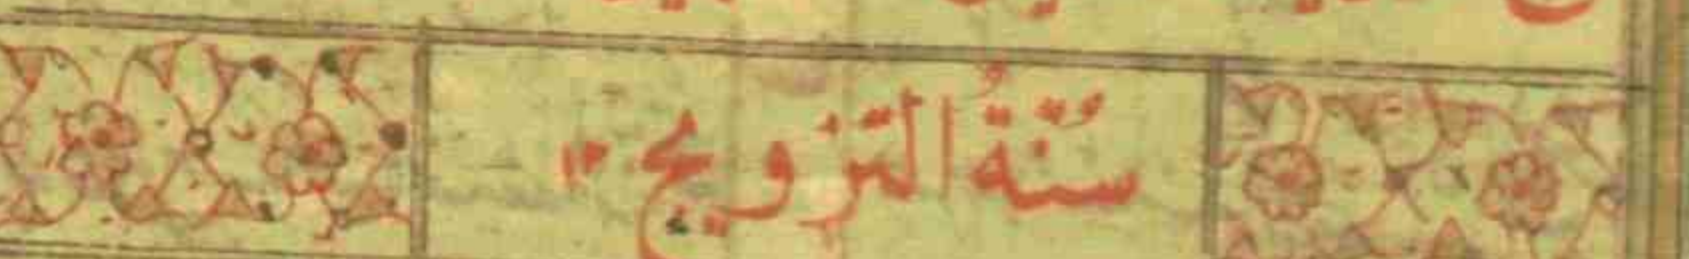 سُنَّةُ التزويج ١٢